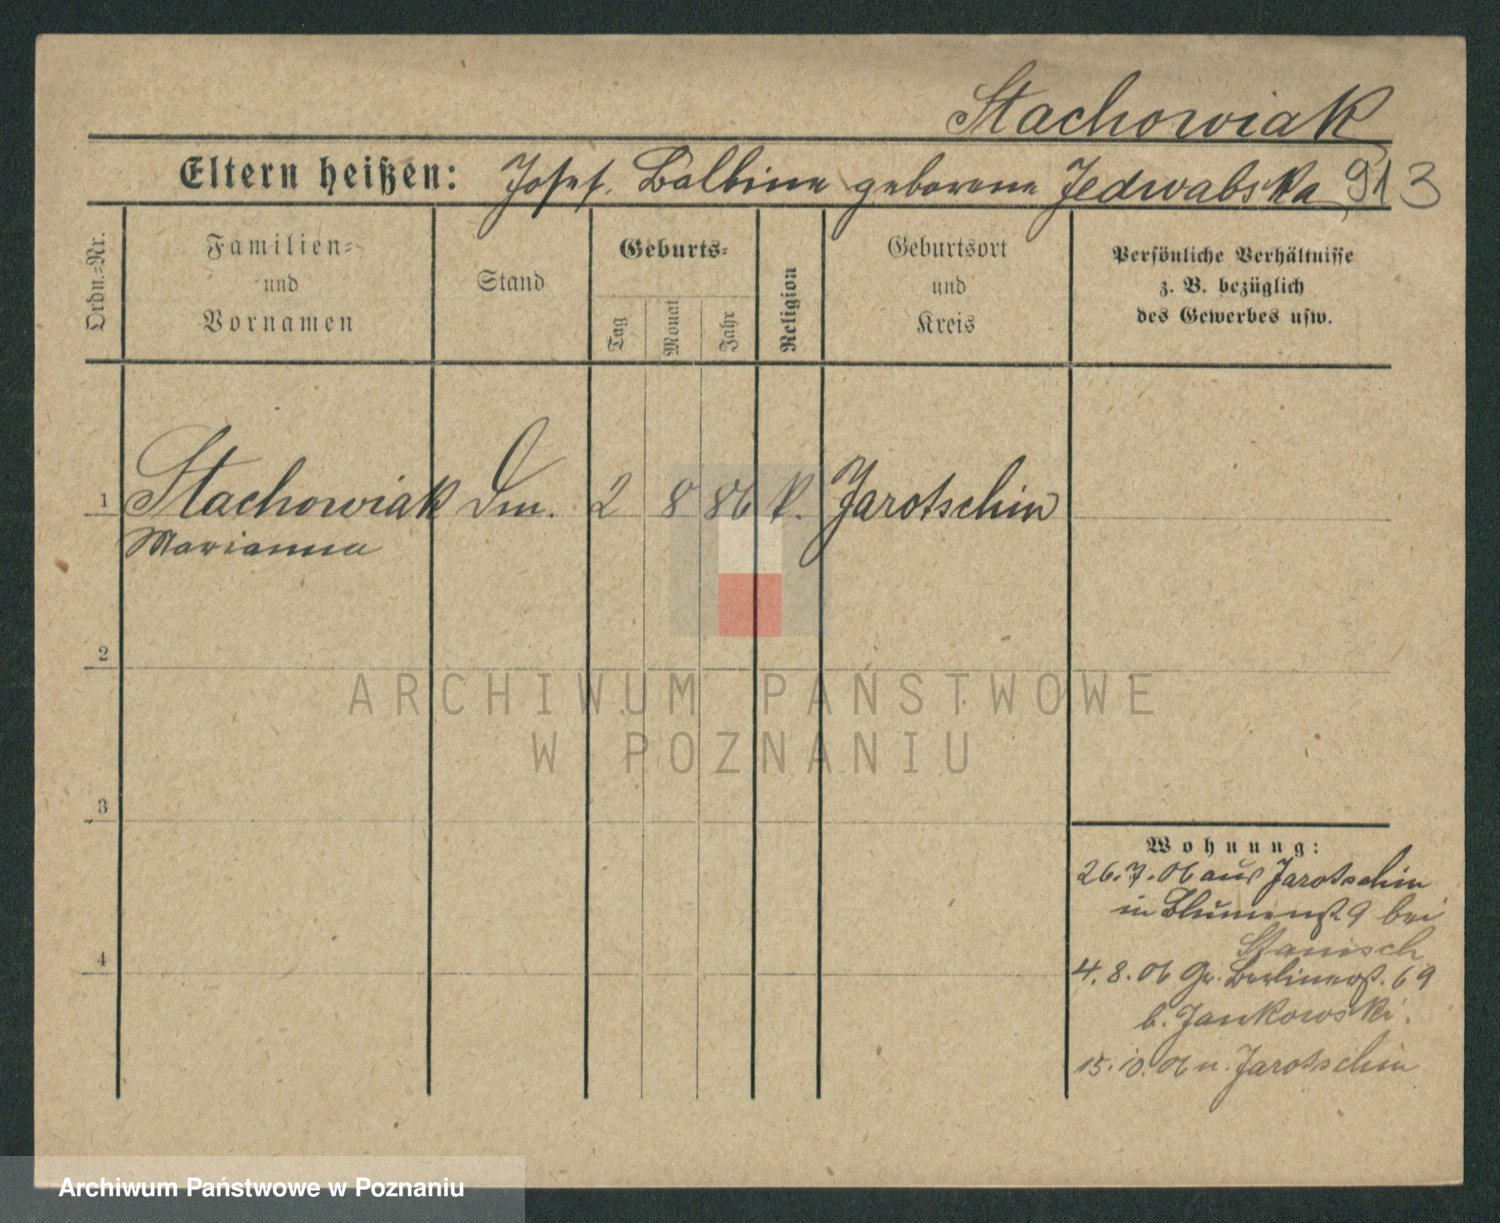 Stachowiak
Eltern heißen: Josef, Balbine geborene Jedwabska 913
Ordn.=Nr.
Familien=
und
Vornamen
Stand
Geburts=
Tag
Monat
Jahr
Religion
Geburtsort
und
Kreis
Persönliche Verhältnisse
z. B. bezüglich
des Gewerbes usw.
1 Stachowiak Dm. 2 8 86 k. Jarotschin
Marianna
2
ARCHIWUM PAŃSTWOWE
W POZNANIU
3
Wohnung:
26.7.06 aus Jarotschin
in Blumenst. 9 bei
4
4.8.06 Gr. Berlinerst. 69
b. Jankowski.
15.10.06 n. Jarotschin
Archiwum Państwowe w Poznaniu